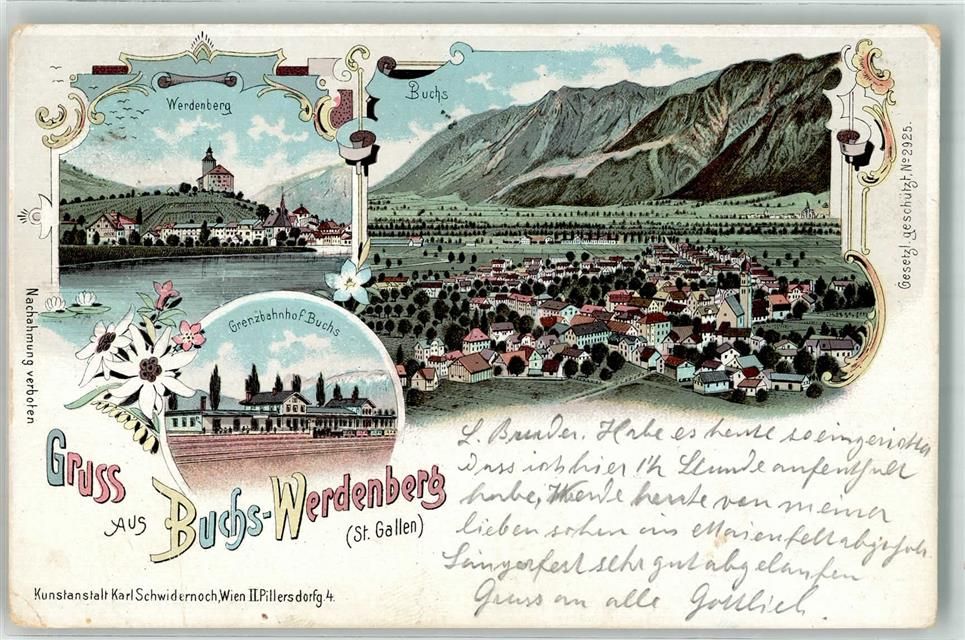 Werdenberg
Buchs
Grenzbahnhof Buchs
Gesetzl. geschützt, No 2925.
Nachahmung verboten
Gruss
aus
Buchs-Werdenberg
(St. Gallen)
Kunstanstalt Karl Schwidernoch, Wien II. Pillersdorfg. 4.
L. Bruder. Habe es heute so eingerichtet
dass ich hier 1½ Stunde aufenthalt
habe, Werde heute von meiner
lieben in Maienfelt abgeholt.
Sängerfest sehr gut abgelaufen
Gruss an alle Gottlieb.